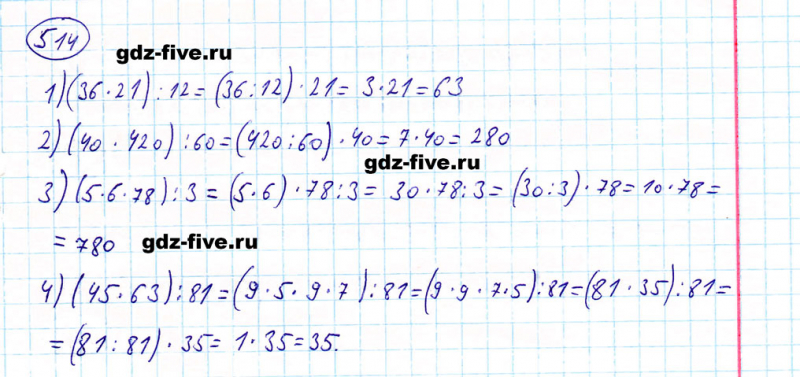 514
gdz-five.ru
1) (36·21) : 12 = (36:12) · 21 = 3·21 = 63
2) (40 · 420) : 60 = (420:60) · 40 = 7·40 = 280
gdz-five.ru
3) (5·6·78) : 3 = (5·6) · 78:3 = 30·78:3 = (30:3) · 78 = 10·78 =
= 780 gdz-five.ru
4) (45·63) : 81 = (9·5·9·7) : 81 = (9·9·7·5) : 81 = (81·35) : 81 =
= (81:81) · 35 = 1·35 = 35.